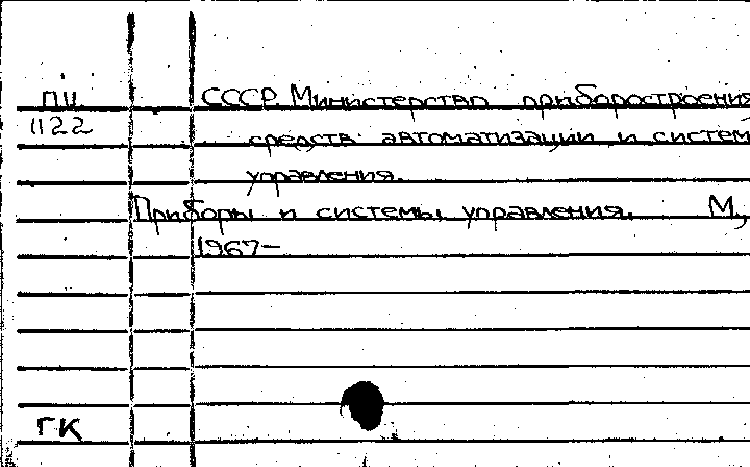 ПИ СССР. Министерство приборостроения,
1122 средств автоматизации и систем
управления.
Приборы и системы управления. М.,
1967-
ГК